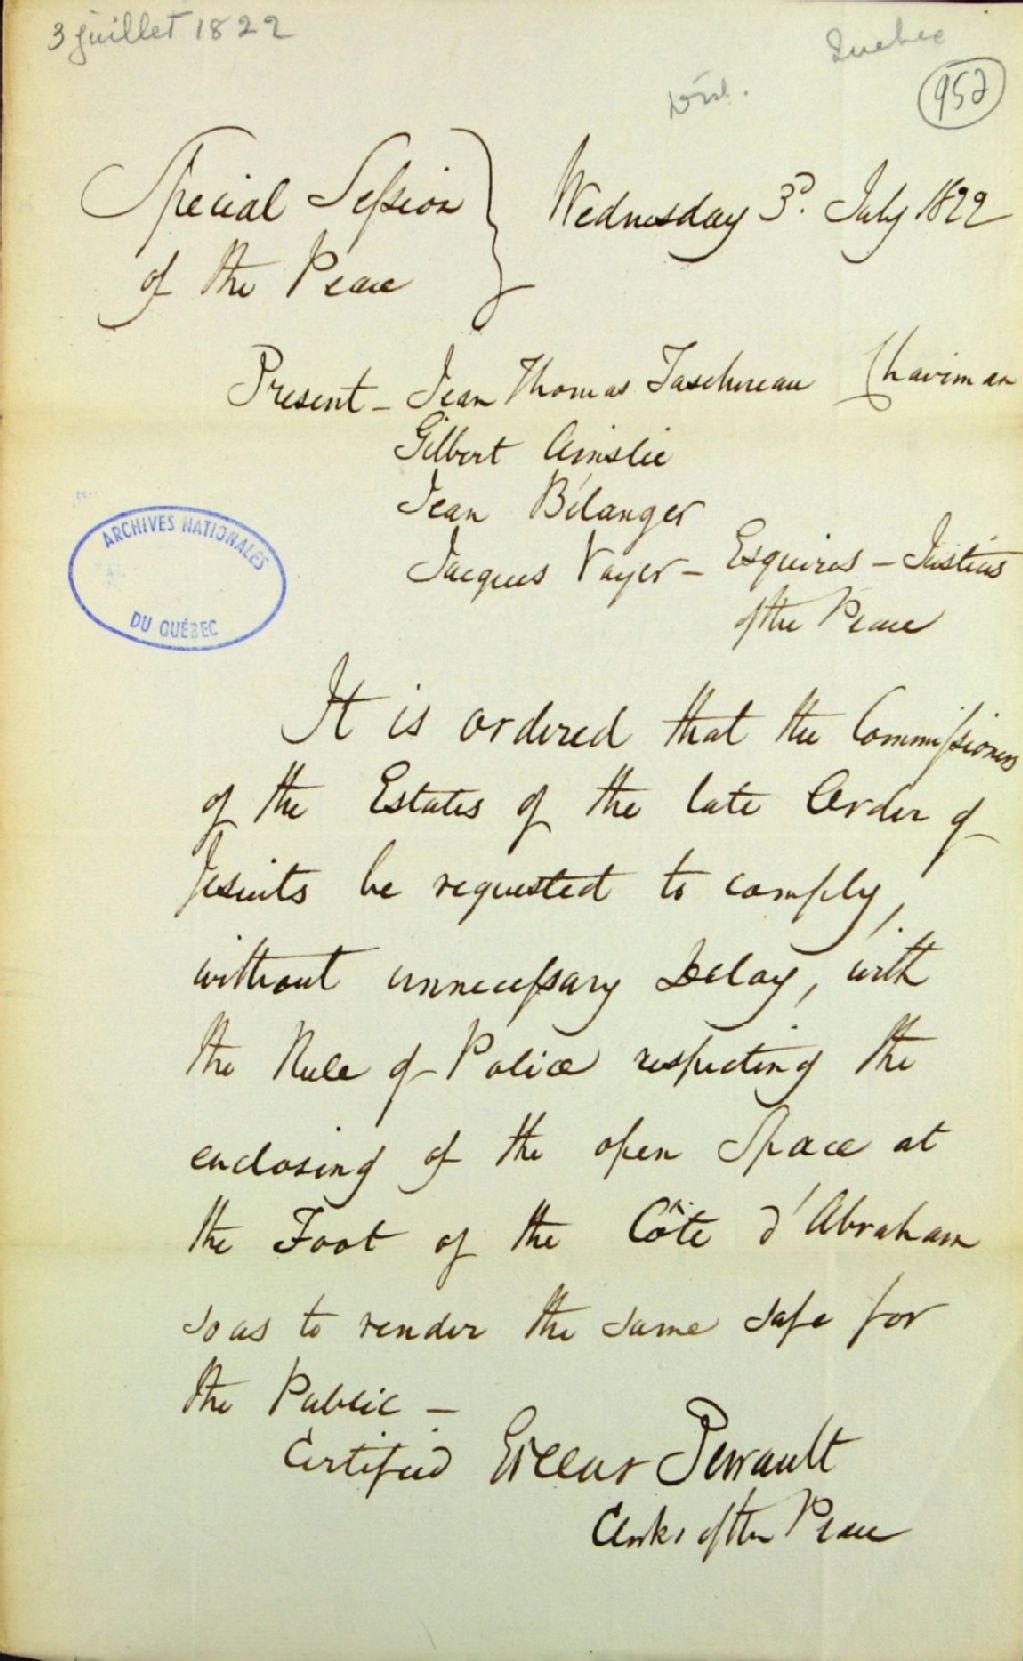 3 juillet 1822
Quebec
952
Special Session
of the Peace
Wednesday 3d. July 1822
Present - Jean Thomas Taschereau Chairman
Gilbert Ainslie
Jean Bélanger
Jacques Voyer - Esquires - Justices
of the Peace
ARCHIVES NATIONALES
DU QUÉBEC
It is ordered that the Commissioners
of the Estates of the late Order of
Jesuits be requested to comply,
without unnecessary Delay, with
the Rule of Police respecting the
enclosing of the open Space at
the Foot of the Côte d'Abraham
so as to render the same safe for
the Public -
Certified Perrault
Clerks of the Peace